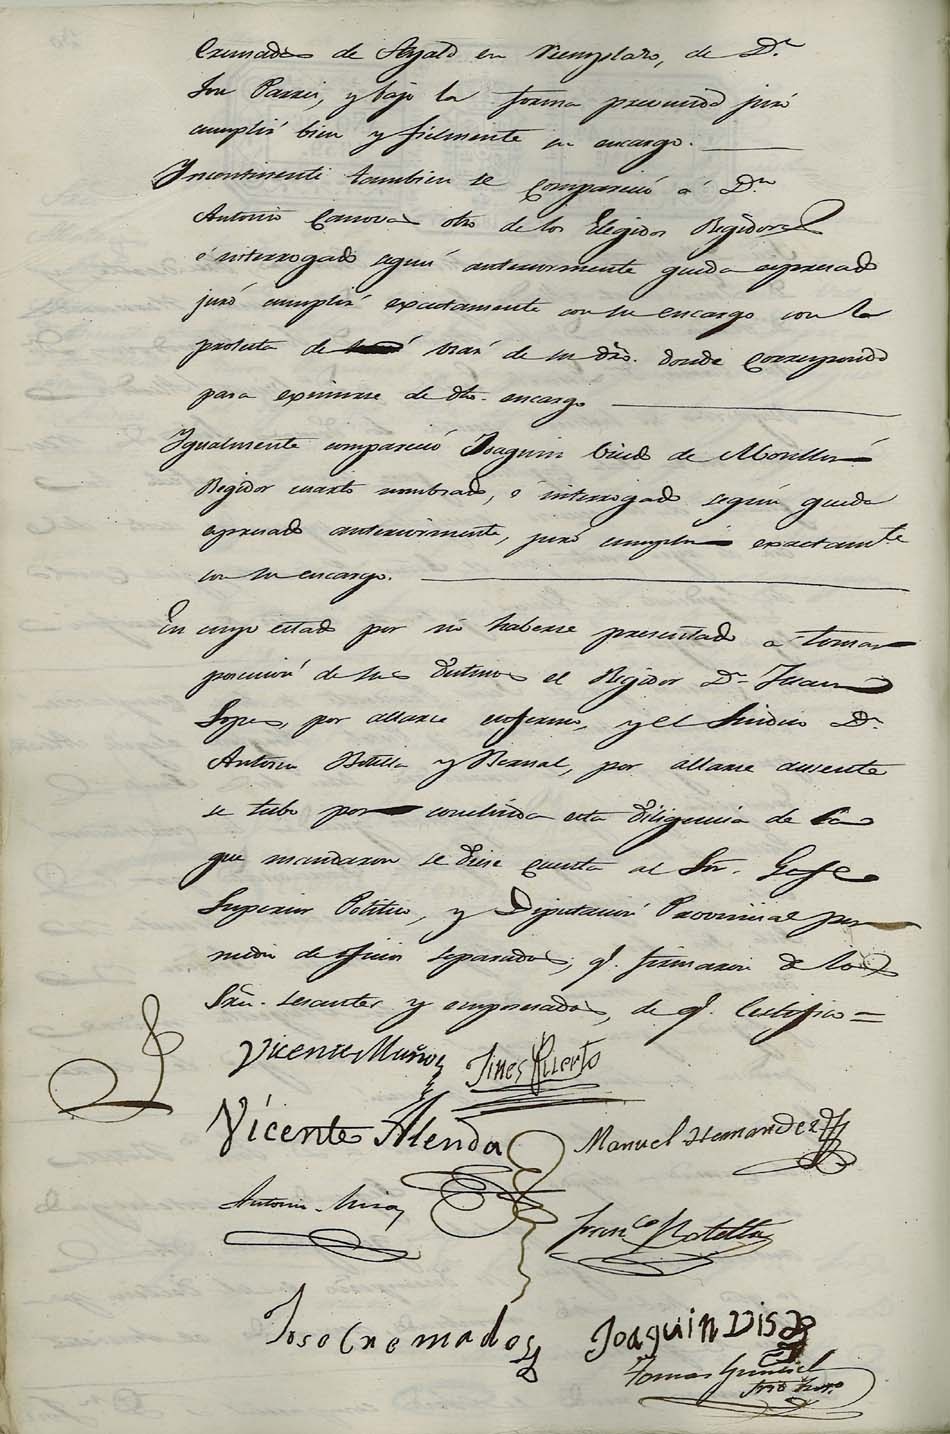 Cremades de Agado en reemplazo, de Dn.
Jose Parres, y bajo la forma prevenida juró
cumplir bien y fielmente su encargo.
Yncontinenti tambien se compareció á Dn.
Antonio Canovas otro de los Elegidos Regidores
é interrogado segun anteriormente queda espresado
juró cumplir exactamente con su encargo con la
protesta de usar de su dro. donde corresponda
para eximirse de dho. encargo
Ygualmente compareció Joaquin Vicedo de Monllor
Regidor cuarto nombrado, é interrogado segun queda
espresado anteriormente, juró cumplir exactamte.
con su encargo.
En cuyo estado por no haberse presentado a tomar
posesion de sus destinos el Regidor Dn. Juan
Lopes, por allarse enfermo, y el Sindico Dn.
Antonio Botella y Bernal, por allarse ausente
se tubo por concluida esta diligencia de la
que mandaron se diese cuenta al Sor. Gefe
Superior Politico, y Diputacion Provincial por
medio de oficios separados, q. firmaron dhos
Sres. cesantes y emposesados, de q. Certifico =
Vicente Muñoz Jines Huerto
Vicente Alenda Manuel Hernandez
Antonio Mira Franco Botella
Jose Cremades Joaquin Visedo
Tomas